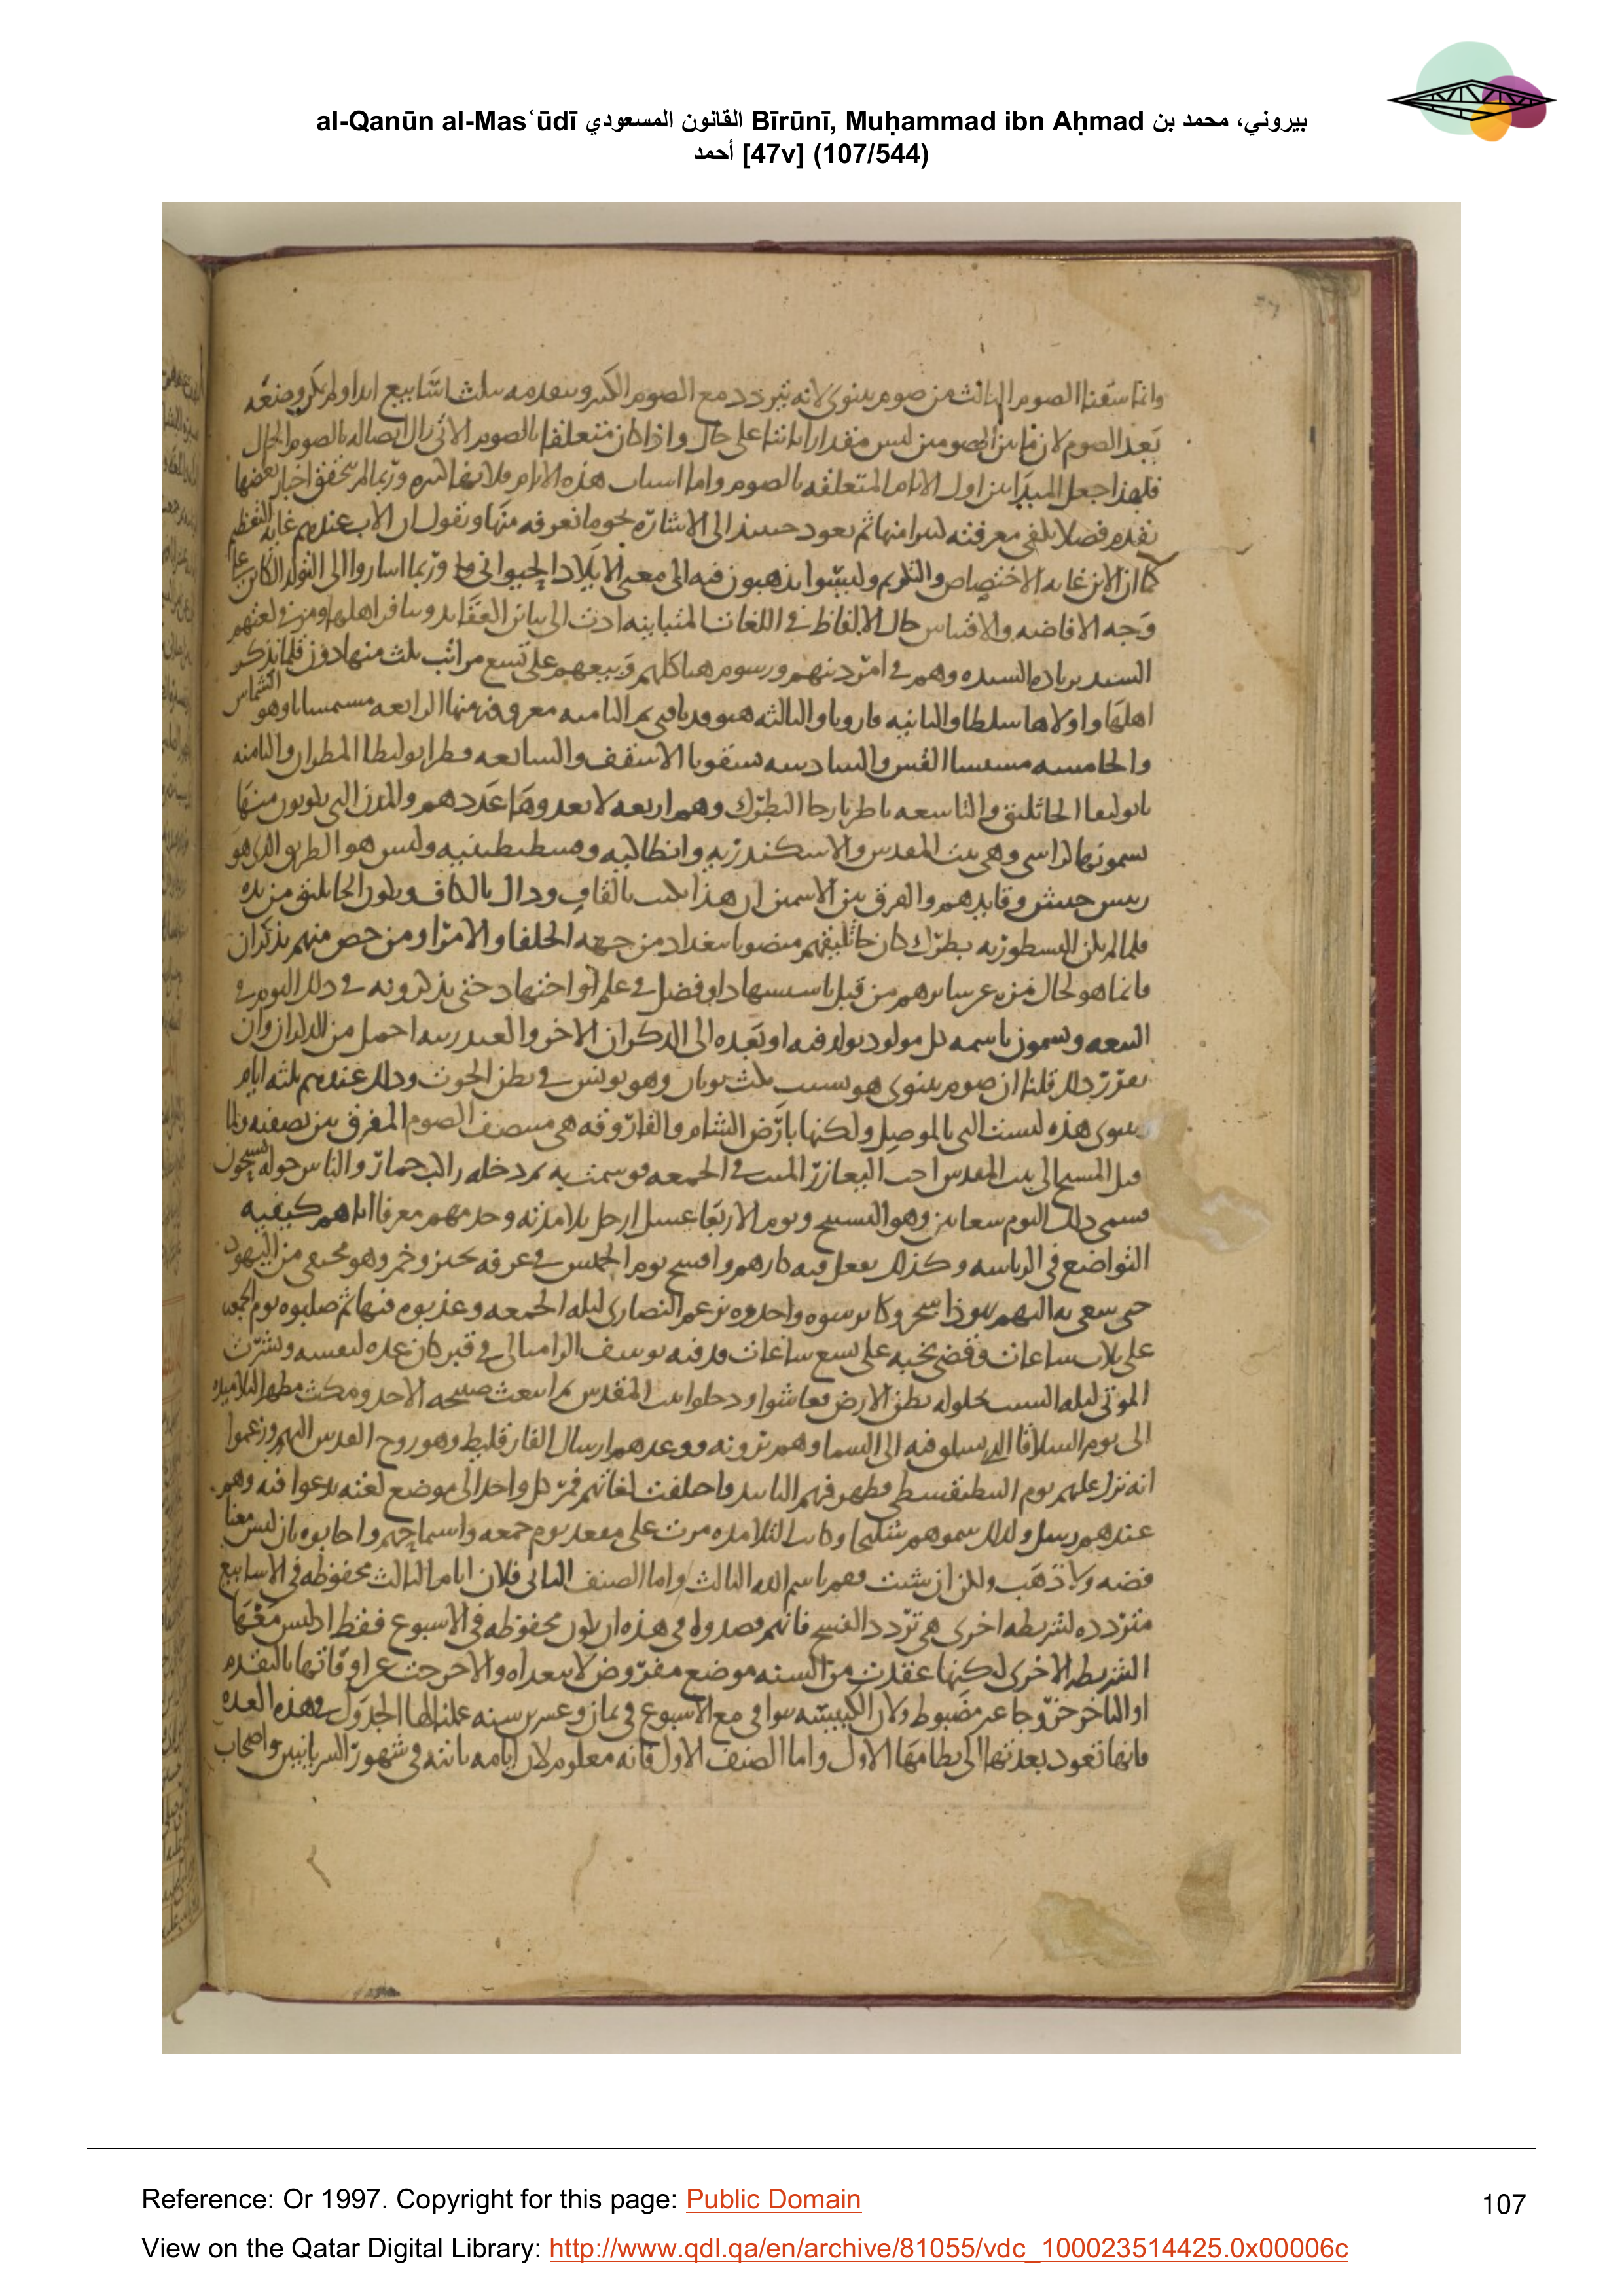 al-Qanūn al-Masʿūdī القانون المسعودي Bīrūnī, Muḥammad ibn Aḥmad بيروني، محمد بن
أحمد [47v] (107/544)
وانما سقنا الصوم الثالث من صوم نينوى لانه يتردد مع الصوم الكبير ويتقدمه بثلث اسابيع ابدا ولم يكن وضعه
بعد الصوم لان ما بين الصومين ليس مقدارا ثابتا على حال واذا كان متعلقا بالصوم الاتي زال اتصاله بالصوم الحال
فلهذا جعل المبدا من اول الايام المتعلقة بالصوم واما اسباب هذه الايام فلانها كثيره وربما لم تتحقق اخبار بعضها
نقدم فصلا معرفته ثم نعود حينئذ الى الاشارة نحو ما نعرفه منها ونقول ان الاب عندهم غاية التعظيم
كما ان الابن غايه الاختصاص والتكريم وليسوا يذهبون فيه الى معنى الايلاد الحيواني وربما اشاروا الى التولد الكائن على
وجه الافاضه والاقتباس حال الالفاظ في اللغات المتباينه ادت الى تباين العقائد وتنافر اهلها ومن في لغتهم
السيده وهم في امر دينهم ورسوم هياكلهم وبيعهم على تسع مراتب ثلث منها دون قلما يذكر
اهلها واولاها سلطا والثانيه قارويا والثالثه ثم الثامنه معروفه منها الرابعه مسمسانا وهو الشماس
والخامسه مسسا القس والسادسه الاسقف والسابعه المطران والثامنه
الجاثليق والتاسعه باطريارحا البطرك وهم اربعه لا يعدوها عددهم والمدن التي يكونون منها
يسمونها كراسي وهي بيت المقدس والاسكندريه وانطاكيه وقسطنطينيه وليس هو الطريق الذي هو
رييس جيش وقايدهم والفرق بين الاسمين ان هذا يكتب بالقاف وذاك بالكاف ويكون الجاثليق من يده
فلما لم يكن للنسطوريه بطرك كان جاثليقهم منصوبا ببغداد من جهه الخلفا والامرا ومن خص منهم بذكران
فانما هو لحال مزيد عن سائرهم من قبل او فضل في علم او اجتهاد حتى يذكرونه في ذلك اليوم في
البيعه ويسمون باسمه كل مولود يولد فيه او بعده الى الذكران الاخر والعيد رتبه اجمل من الذكران وان
تقرر ذلك قلنا ان صوم نينوى هو بسبب مكث يونان وهو يونس في بطن الحوت وذلك عندهم ثلثه ايام
ونينوى هذه ليست التي بالموصل ولكنها بارض الشام والفاروقه هي منتصف الصوم المفرق بين نصفيه ولما
المسيح الى بيت المقدس احيا اليعازر الميت في الجمعه فوسمت به ثم دخله راكب حمار والناس حوله يسبحون
فسمى ذلك اليوم سعانين وهو التسبيح ويوم الاربعا غسل ارجل تلامذته وحدمهم معرفا اياهم كيفيه
التواضع في الرياسه وكذلك يفعل فيه كبارهم وافسح يوم الخميس في غرفه بخبز وخمر وهو مختفي من اليهود
حتى سعى به اليهم يهوذا سخريوطا واخذوه بزعم النصارى ليله الجمعه وعذبوه فيها ثم صلبوه يوم الجمعه
على ثلاث ساعات وقضى نحبه على تسع ساعات ودفنه يوسف الرامياني في قبر كان عده لنفسه ونشرت
الموتى ليله السبت بحلوله بطن الارض فعاشوا ودخلوا بيت المقدس ثم انبعث صبيحه الاحد ومكث مظهرا لتلاميذه
الى يوم السلاقا الذي تسلق فيه الى السما وهم يرونه ووعدهم ارسال الفارقليط وهو روح القدس اليهم وزعموا
انه نزل عليهم يوم البنطيقسطي وظهر فيهم التاييد واختلفت لغاتهم فمر كل واحد الى موضع لغته يدعوا فيه وهم
عندهم رسل ولذلك سموهم شليحا وكانت التلامذه مرت على مقعد يوم جمعه واستماحهم واجابوه بان ليس معنا
فضه ولا ذهب ولكن ان شيت فقم باسم الله الثالث واما الصنف الثاني فلان ايام الثالث محفوظه في الاسابيع
متردده لشريطه اخرى هي تردد الفسح فانهم قصدوا في هذه ان يكون محفوظه في الاسبوع فقط اذ ليس معها
الشريطه الاخرى لكنها عقدت من السنه موضع مفروض لا والاخر حتى عن اوقاتها بالتقدم
او التاخر خروجا غير مضبوط ولان الكبيسه توافي مع الاسبوع في ثمان وعشرين سنه عملنا لها الجدول في هذه العده
فانها تعود بعدتها الى نظامها الاول واما الصنف الاول فانه معلوم لان ايامه ثابته في شهور السريانيين واصحاب
Reference: Or 1997. Copyright for this page: Public Domain
107
View on the Qatar Digital Library: http://www.qdl.qa/en/archive/81055/vdc_100023514425.0x00006c